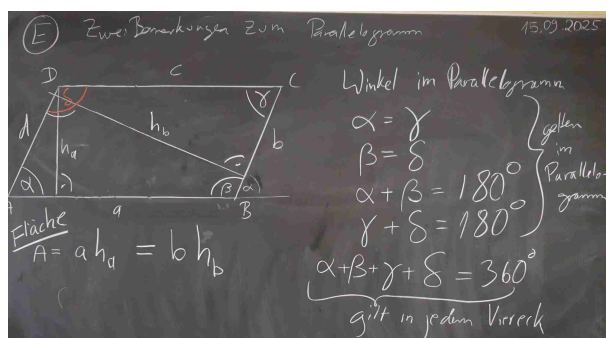 E Zwei Bemerkungen zum Parallelogramm 15.09.2025
D c C
δ γ
d h_a h_b b
α β α
A a B
Fläche
A = a h_a = b h_b
Winkel im Parallelogramm
α = γ
β = δ
α + β = 180°
γ + δ = 180°
gelten
im
Parallelo-
gramm
α+β+γ+δ = 360°
gilt in jedem Viereck